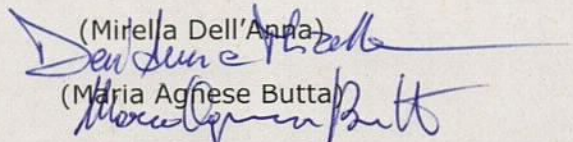 (Mirella Dell'Anna)
Dell'Anna Mirella
(Maria Agnese Butta)
Maria Agnese Butta